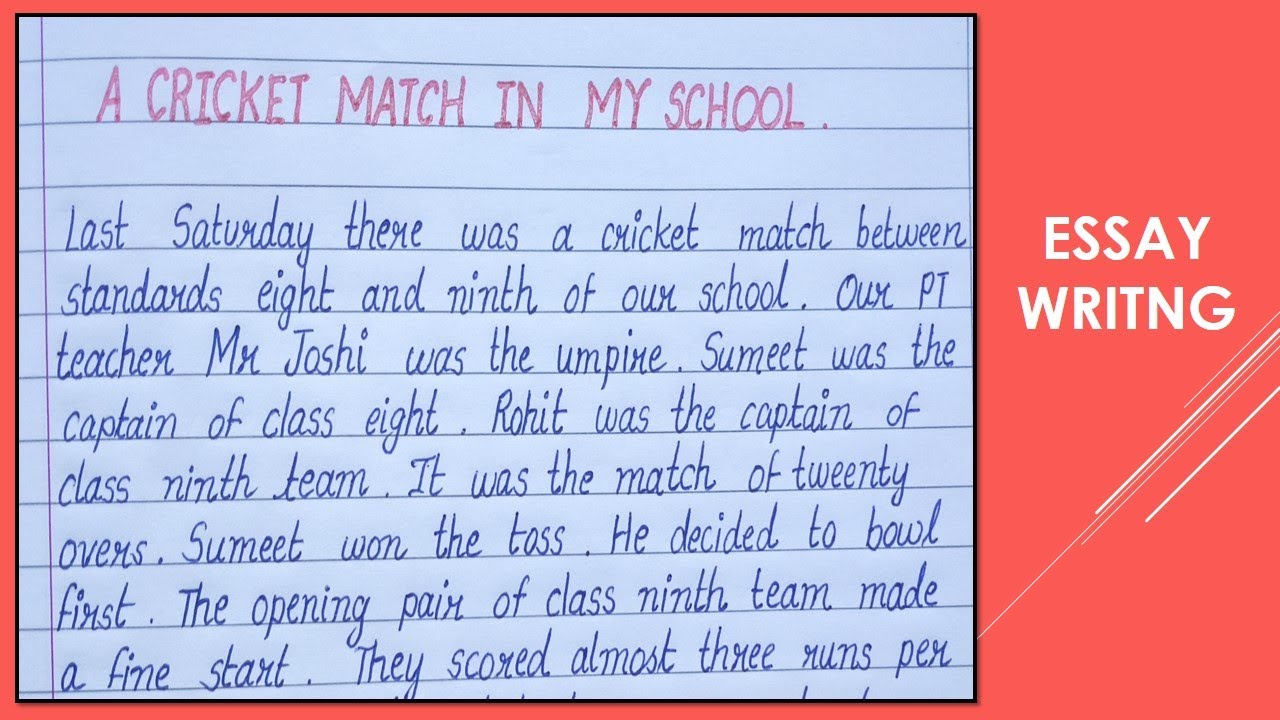 A CRICKET MATCH IN MY SCHOOL.
Last Saturday there was a cricket match between
standards eight and ninth of our school. Our PT
teacher Mr Joshi was the umpire. Sumeet was the
captain of class eight. Rohit was the captain of
class ninth team. It was the match of tweenty
overs. Sumeet won the toss. He decided to bowl
first. The opening pair of class ninth team made
a fine start. They scored almost three runs per
ESSAY
WRITNG